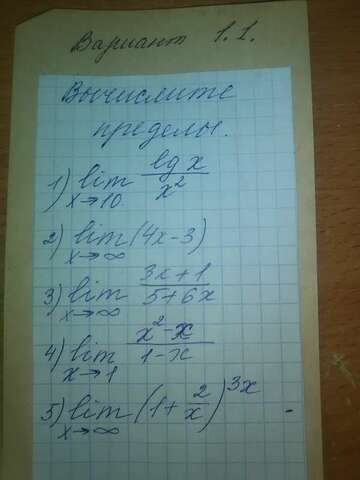 Вариант 1.1.
Вычислите
пределы.
1) lim x→10 lg x / x²
2) lim x→∞ (4x-3)
3) lim x→∞ 3x+1 / 5+6x
4) lim x→1 x²-x / 1-x
5) lim x→∞ (1+ 2/x)^3x